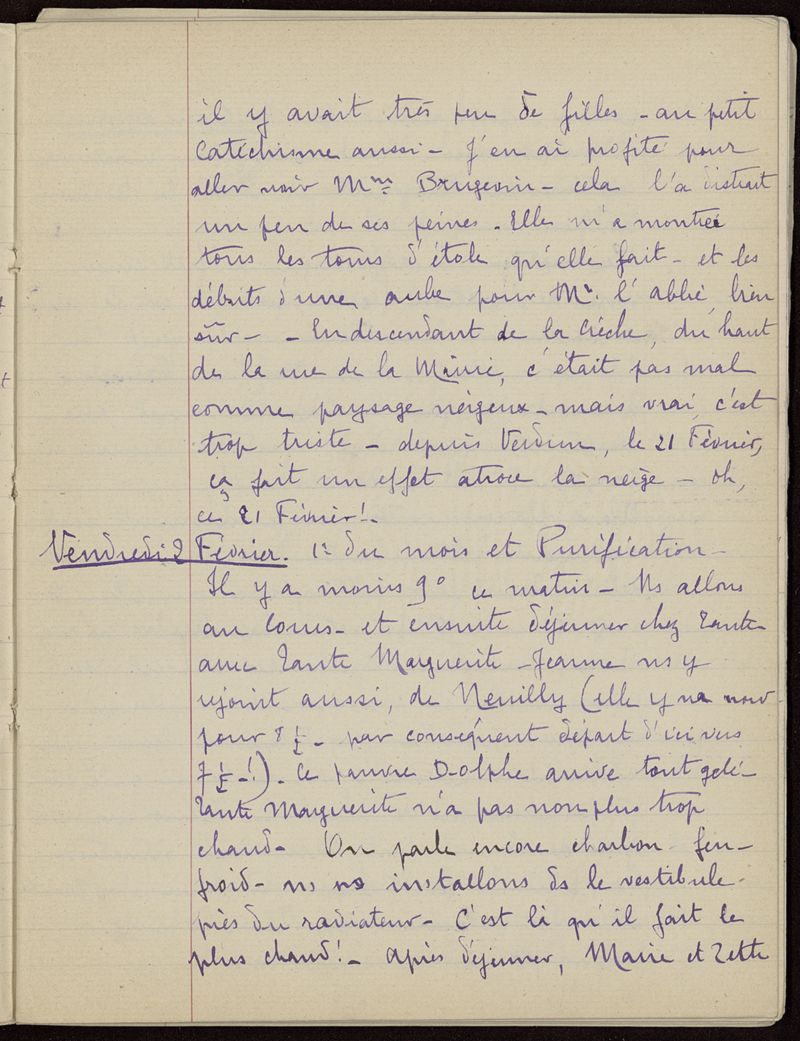 il y avait très peu de filles - au petit
Catéchisme aussi - J'en ai profité pour
aller voir Mme Brugevin - cela l'a distrait
un peu de ses peines. Elle m'a montré
tous les tours d'étole qu'elle fait - et les
débuts d'une aube pour Mr. l'abbé, bien
sûr - - En descendant de la Crèche, du haut
de la rue de la Mairie, c'était pas mal
comme paysage neigeux - mais vrai, c'est
trop triste - depuis Verdun, le 21 Février,
ça fait un effet atroce la neige - oh,
ce 21 Février! -
Vendredi 2 Février. 1er du mois et Purification -
Il y a moins 9° ce matin - Ns allons
au Cours - et ensuite déjeuner chez Tante
avec Tante Marguerite - Jeanne ns y
rejoint aussi, de Neuilly (elle y va
pour 8 1/2 - par conséquent départ d'ici vers
7 1/2 - !) - Ce pauvre D-olphe arrive tout gelé -
Tante Marguerite n'a pas non plus trop
chaud - On parle encore charbon - feu -
froid - ns ns installons ds le vestibule -
près du radiateur - C'est là qu'il fait le
plus chaud! - Après déjeuner, Marie et Zette